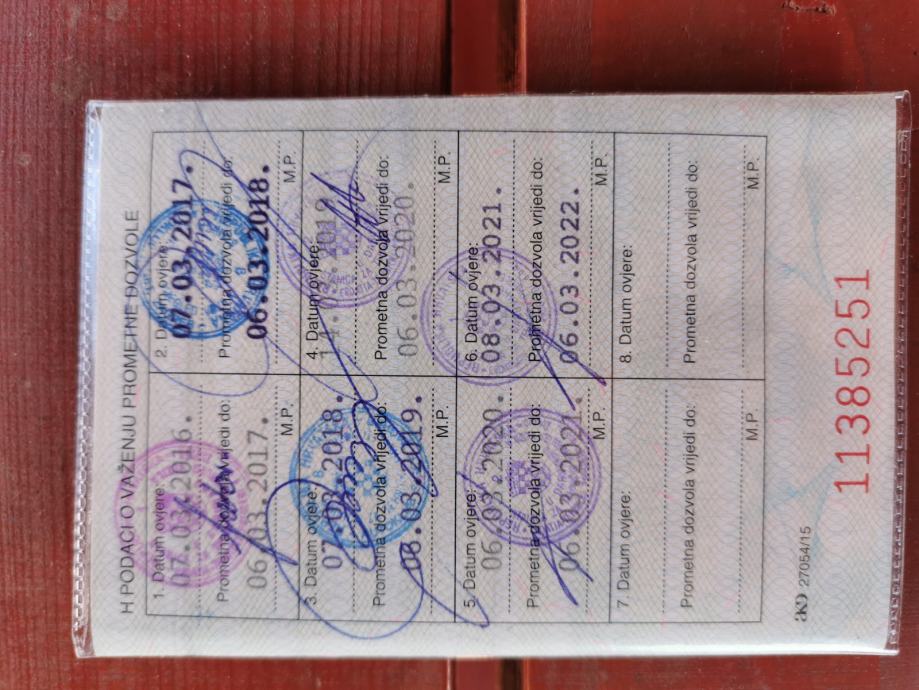 H PODACI O VAŽENJU PROMETNE DOZVOLE
1. Datum ovjere:
07.03.2016.
Prometna dozvola vrijedi do:
06.03.2017.
M.P.
2. Datum ovjere:
07.03.2017.
Prometna dozvola vrijedi do:
06.03.2018.
M.P.
3. Datum ovjere:
07.03.2018.
Prometna dozvola vrijedi do:
06.03.2019.
M.P.
4. Datum ovjere:
2019
Prometna dozvola vrijedi do:
06.03.2020.
M.P.
5. Datum ovjere:
06.03.2020.
Prometna dozvola vrijedi do:
06.03.2021.
M.P.
6. Datum ovjere:
08.03.2021.
Prometna dozvola vrijedi do:
06.03.2022.
M.P.
7. Datum ovjere:
Prometna dozvola vrijedi do:
M.P.
8. Datum ovjere:
Prometna dozvola vrijedi do:
M.P.
AKD 27054/15
11385251